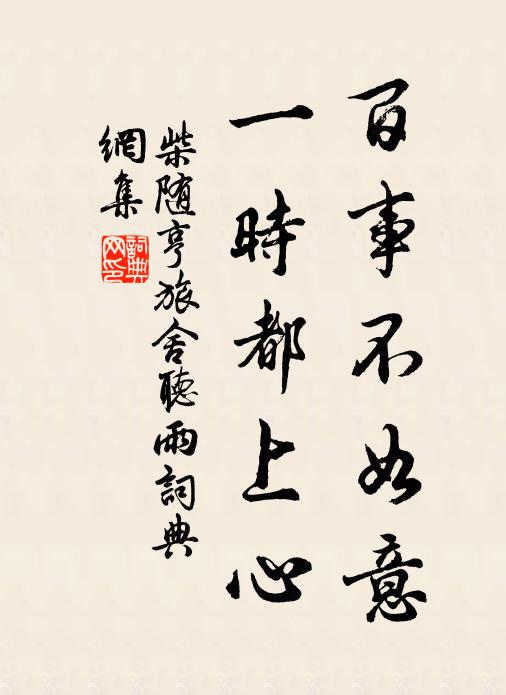 百事不如意
一時都上心
柴随亨旅舍聽雨詞典
網集
詞典
网印